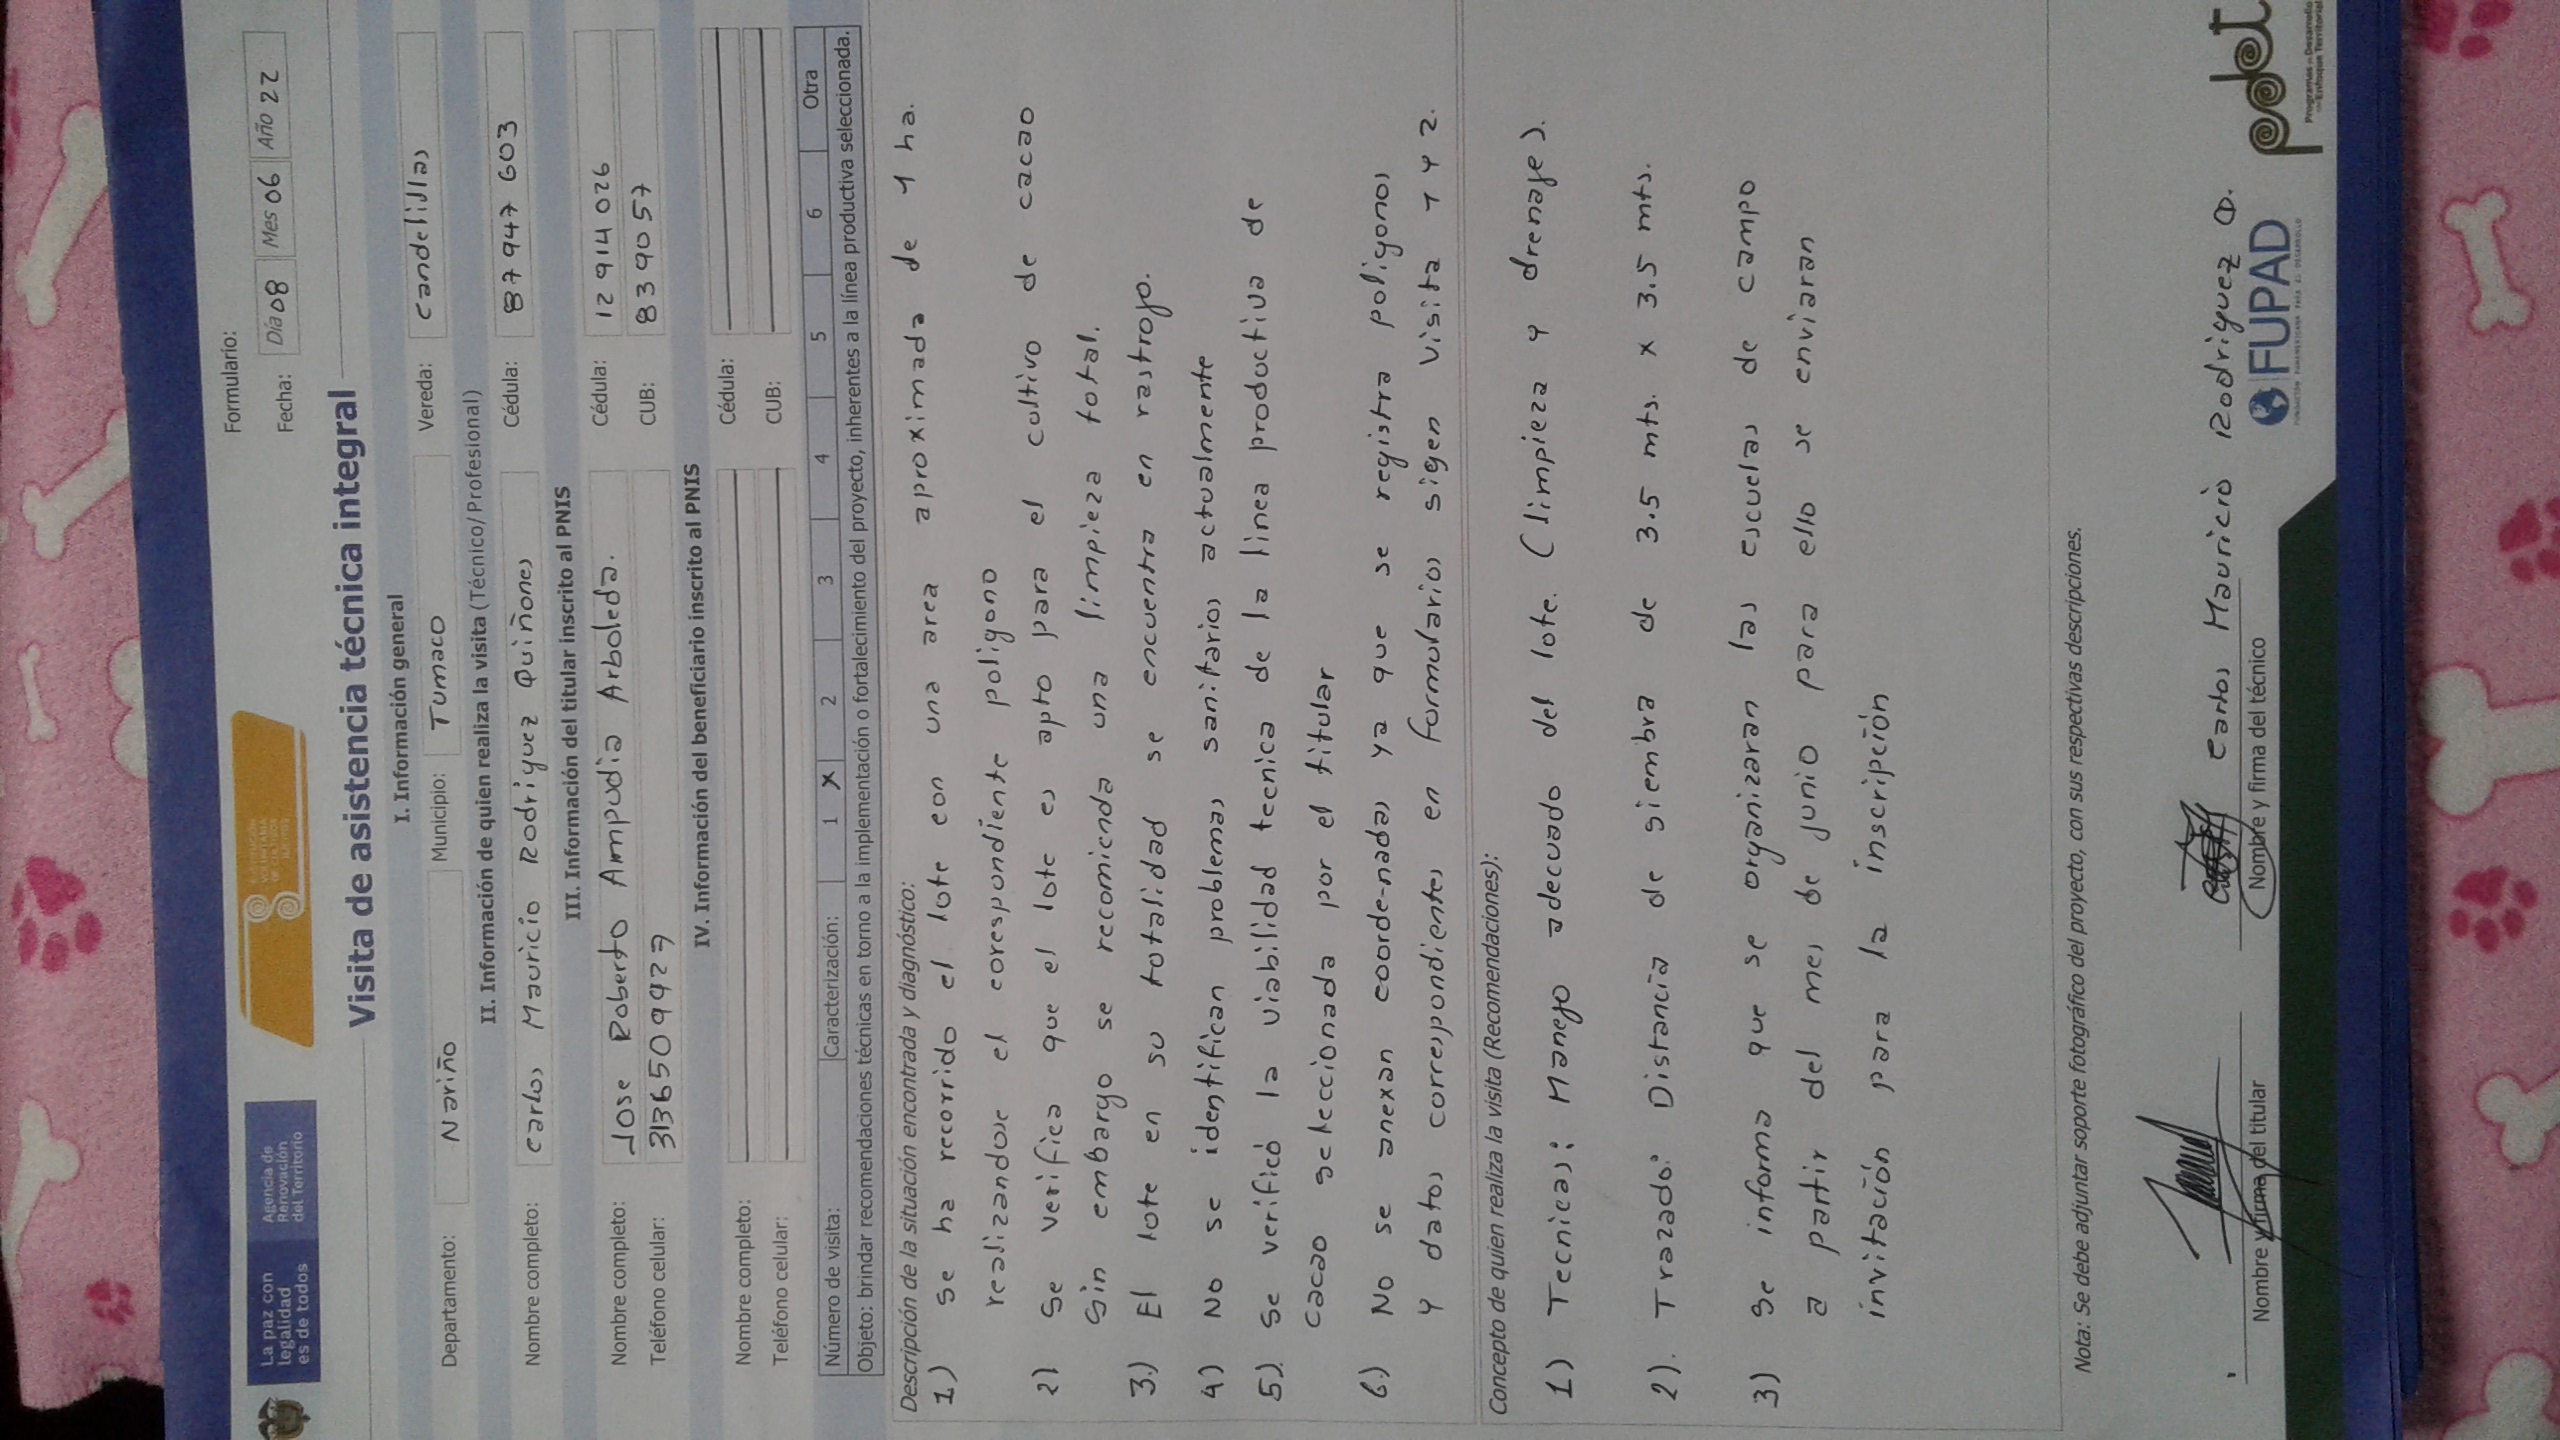 La paz con
legalidad
es de todos
Agencia de
Renovación
del Territorio
Formulario:
Fecha: Día 08 Mes 06 Año 22
Visita de asistencia técnica integral
I. Información general
Departamento: Nariño Municipio: Tumaco Vereda: Candelillas
II. Información de quien realiza la visita (Técnico/Profesional)
Nombre completo: Carlos Mauricio Rodriguez Quiñones Cédula: 87947603
III. Información del titular inscrito al PNIS
Nombre completo: Jose Roberto Ampudia Arboleda. Cédula: 12914026
Teléfono celular: CUB: 839057
IV. Información del beneficiario inscrito al PNIS
Nombre completo: Cédula:
Teléfono celular: CUB:
Número de visita: Caracterización: 1 X 2 3 4 5 6 Otra
Objeto: brindar recomendaciones técnicas en torno a la implementación o fortalecimiento del proyecto, inherentes a la línea productiva seleccionada.
Descripción de la situación encontrada y diagnóstico:
1) Se ha recorrido el lote con una area aproximada de 1 ha.
realizandose el corespondiente poligono
2) Se verifica que el lote es apto para el cultivo de cacao
Sin embargo se recomienda una limpieza total.
3.) El lote en su totalidad se encuentra en rastrojo.
4) No se identifican problemas sanitarios actualmente
5). Se verificó la viabilidad tecnica de la linea productiva de
cacao seleccionada por el titular
6.) No se anexan coorde-nadas ya que se registra poligonos
y datos correspondientes en formularios sigen visita 1 y 2.
Concepto de quien realiza la visita (Recomendaciones):
1) Tecnicas: Manejo adecuado del lote. (limpieza y drenaje).
2). Trazado: Distancia de siembra de 3.5 mts. x 3.5 mts.
3) Se informa que se organizaran las escuelas de campo
a partir del mes de junio para ello se enviaran
invitación para la inscripción
Nota: Se debe adjuntar soporte fotográfico del proyecto, con sus respectivas descripciones.
Carlos Mauricio Rodriguez Q.
Nombre y firma del titular
Nombre y firma del técnico
FUPAD
pdet
Programas de Desarrollo
con Enfoque Territorial